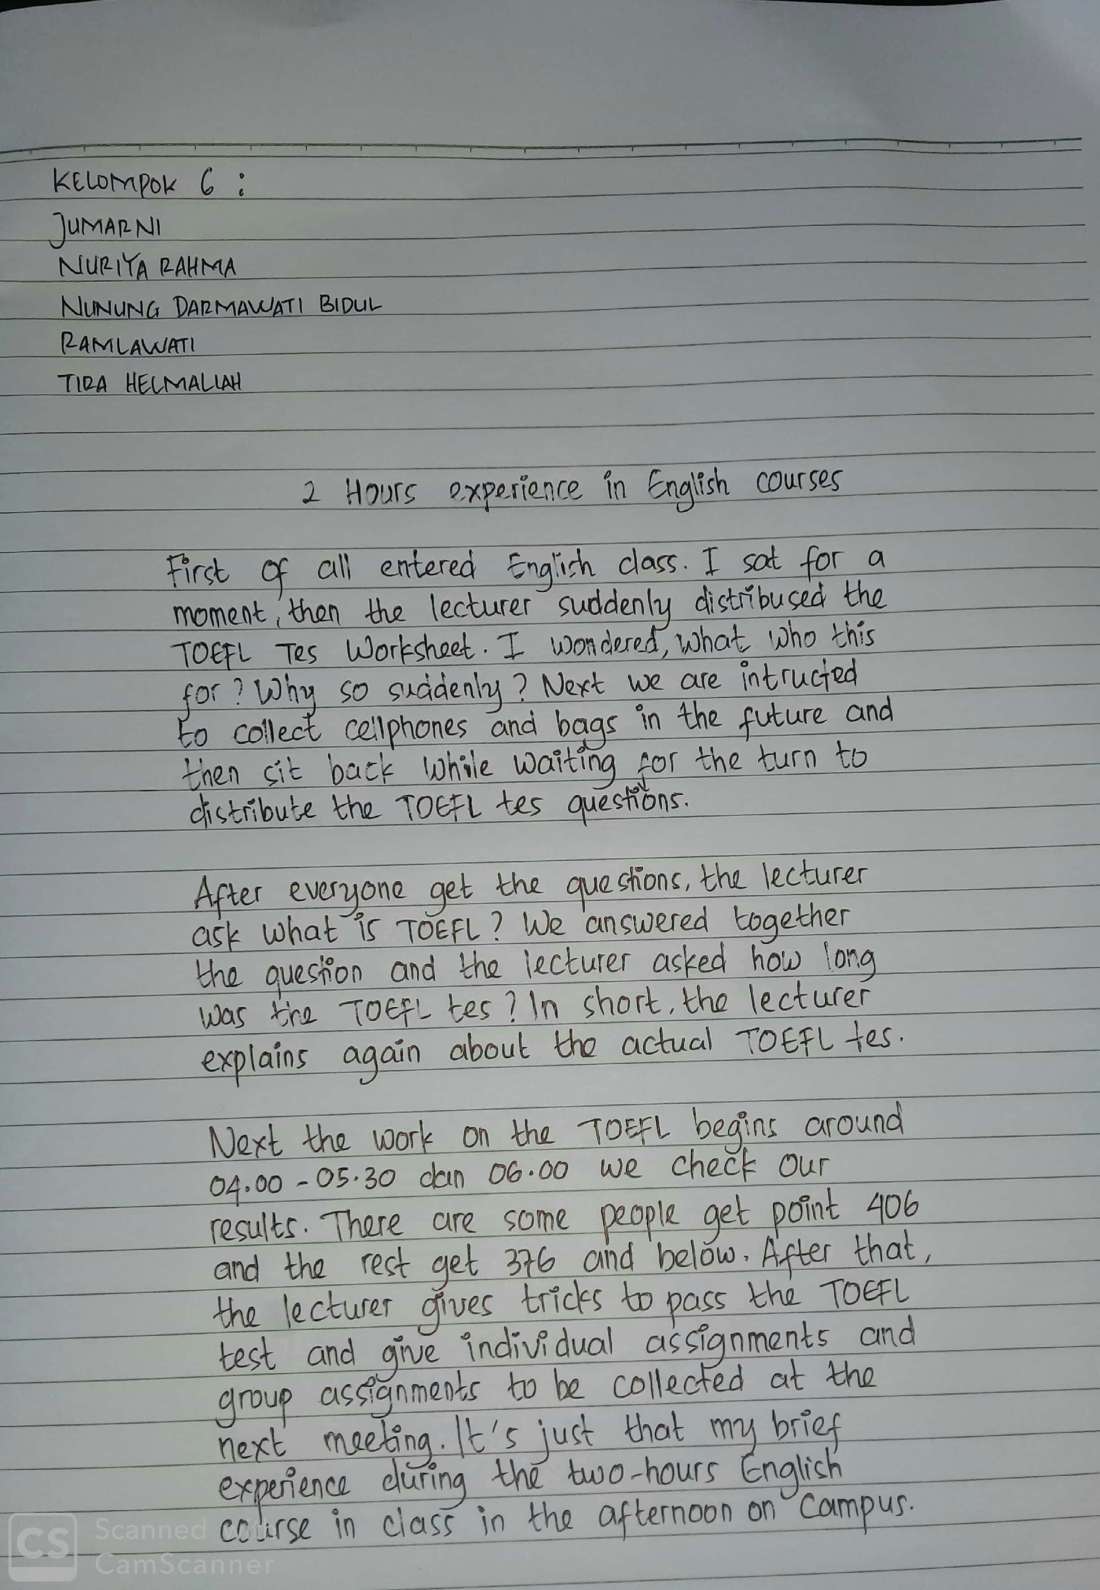 KELOMPOK 6 :
JUMARNI
NURIYA RAHMA
NUNUNG DARMAWATI BIDUL
RAMLAWATI
TIRA HELMALIAH
2 Hours experience in English courses
First of all entered English class. I sat for a
moment, then the lecturer suddenly distribused the
TOEFL Tes Worksheet. I wondered, what who this
for? Why so suddenly? Next we are intructed
to collect cellphones and bags in the future and
then sit back while waiting for the turn to
distribute the TOEFL tes questions.
After everyone get the questions, the lecturer
ask what is TOEFL? We answered together
the question and the lecturer asked how long
was the TOEFL tes? In short, the lecturer
explains again about the actual TOEFL tes.
Next the work on the TOEFL begins around
04.00 - 05.30 dan 06.00 we check our
results. There are some people get point 406
and the rest get 376 and below. After that,
the lecturer gives tricks to pass the TOEFL
test and give individual assignments and
group assignments to be collected at the
next meeting. It's just that my brief
experience during the two-hours English
course in class in the afternoon on campus.
CS Scanned
CamScanner